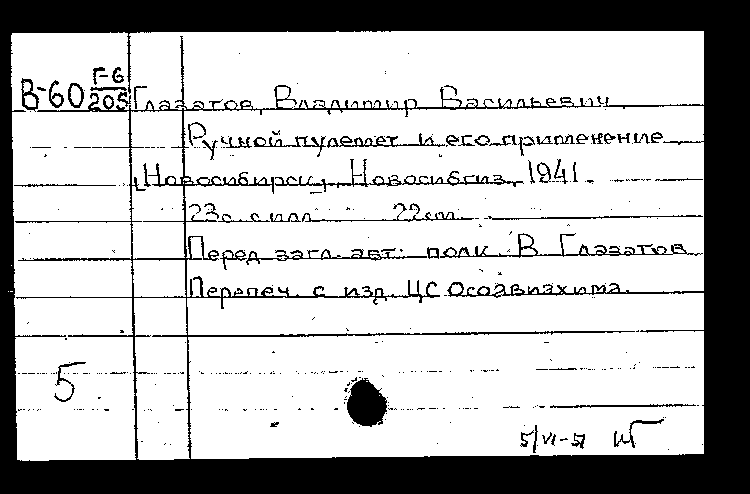 В-60 Г-6
205 Глазатов, Владимир Васильевич.
Ручной пулемет и его применение.
[Новосибирск], Новосибгиз, 1941.
23с. с илл. 22см.
Перед загл. авт: полк. В Глазатов
Перепеч. с изд. ЦС Осоавиахима.
5
5/VI-51